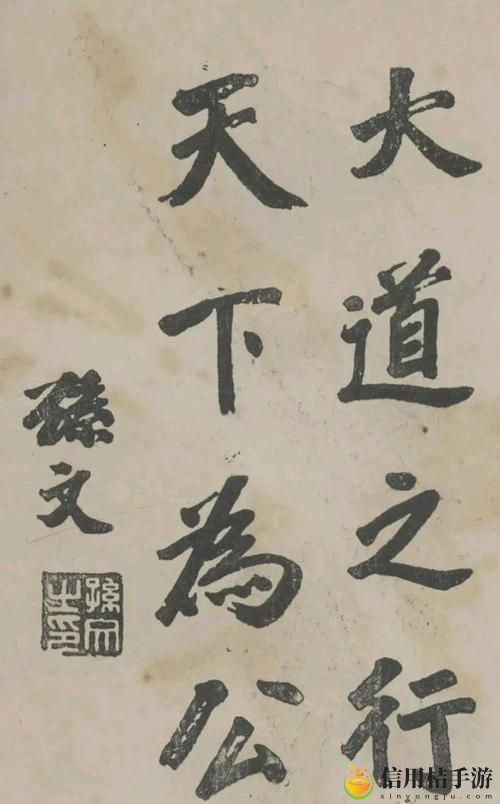 大道之行
天下為公
孫文
孫文之印
信用桔手游
xinyongju.com